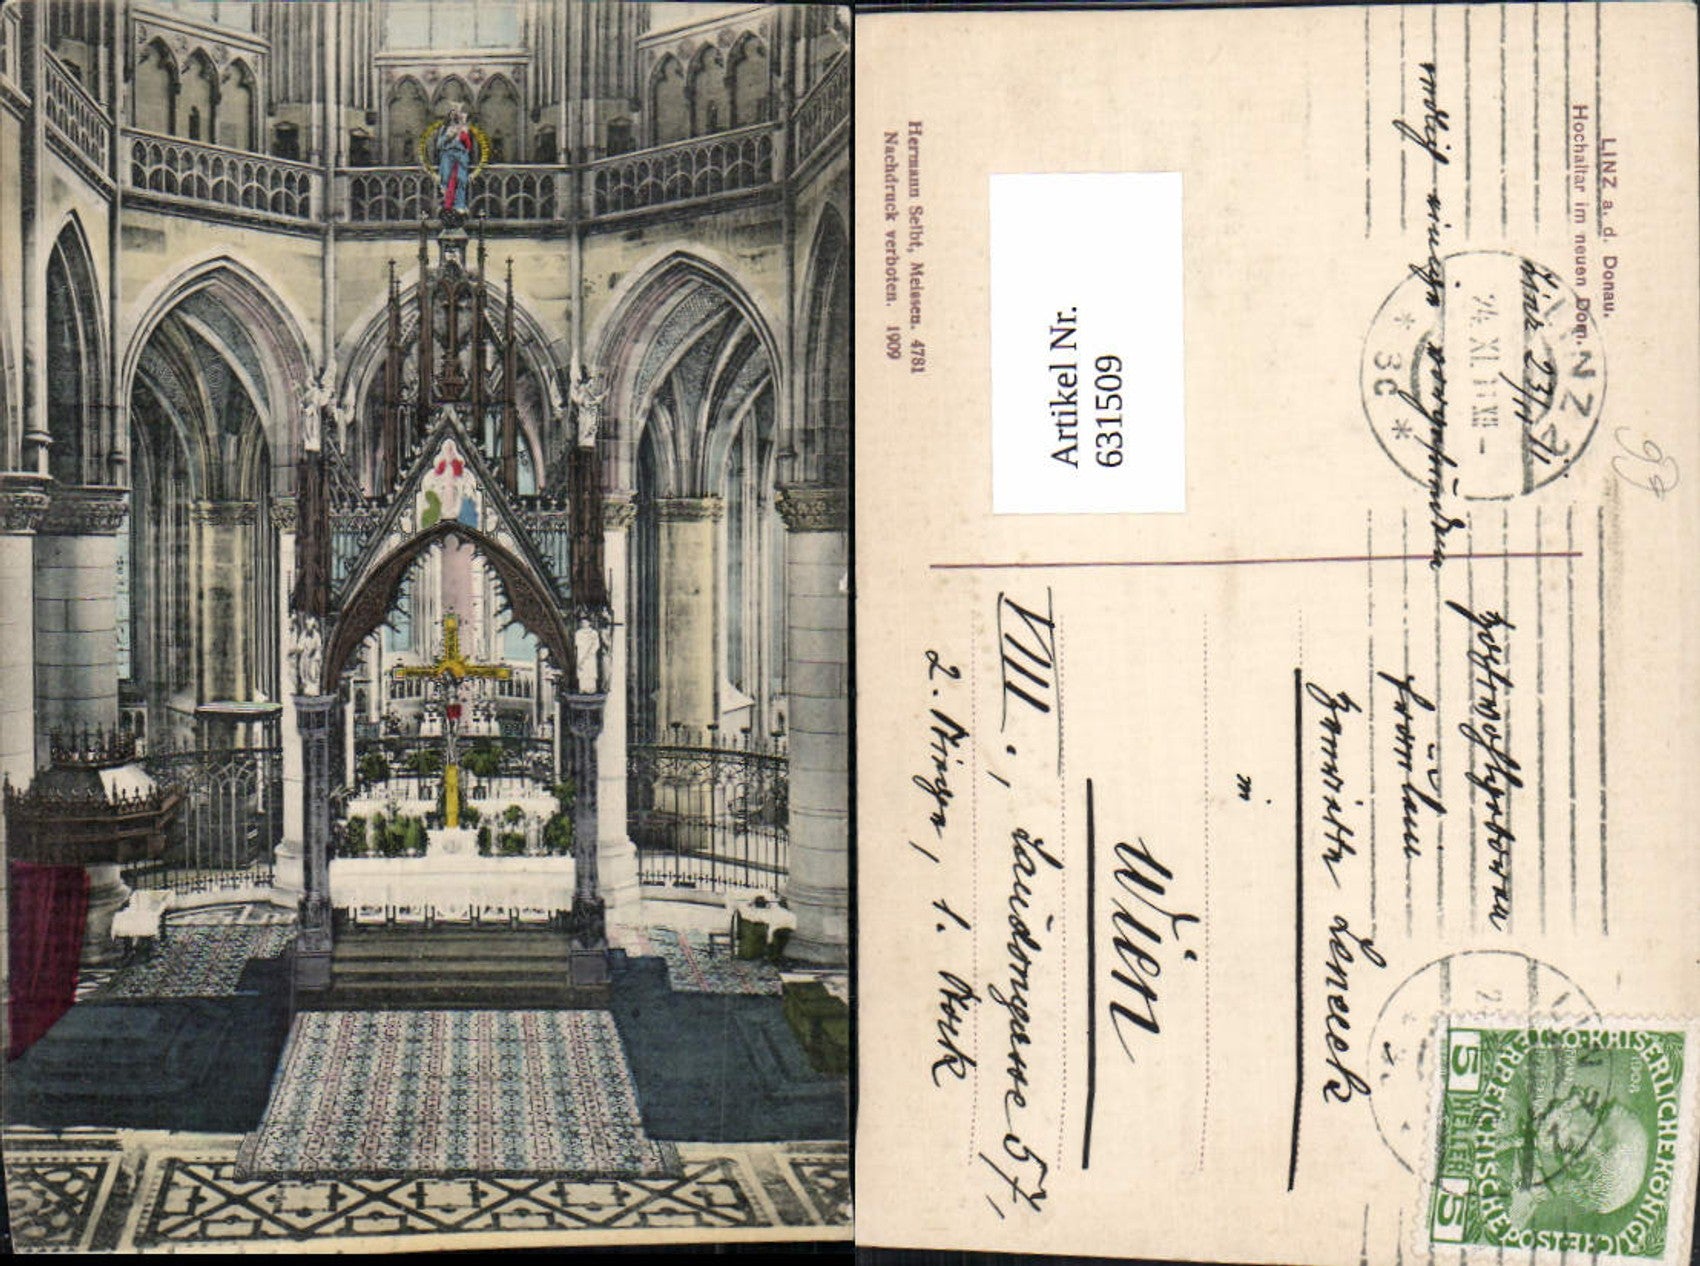 LINZ a. d. Donau.
Hochaltar im neuen Dom.
Linz 23/11 11.
LINZ 2
24. XI. 11 XII -
* 3d *
Hermann Seibt, Meissen. 4781
Nachdruck verboten. 1909
Artikel Nr.
631509
Hochwohlgeboren
Fräulein
Henriette
in
Wien
VIII., Laudongasse 57,
2. Stiege, 1. Stock
KAISERLICHE KÖNIGLICHE ÖSTERREICHISCHE POST
5 HELLER 5
1908